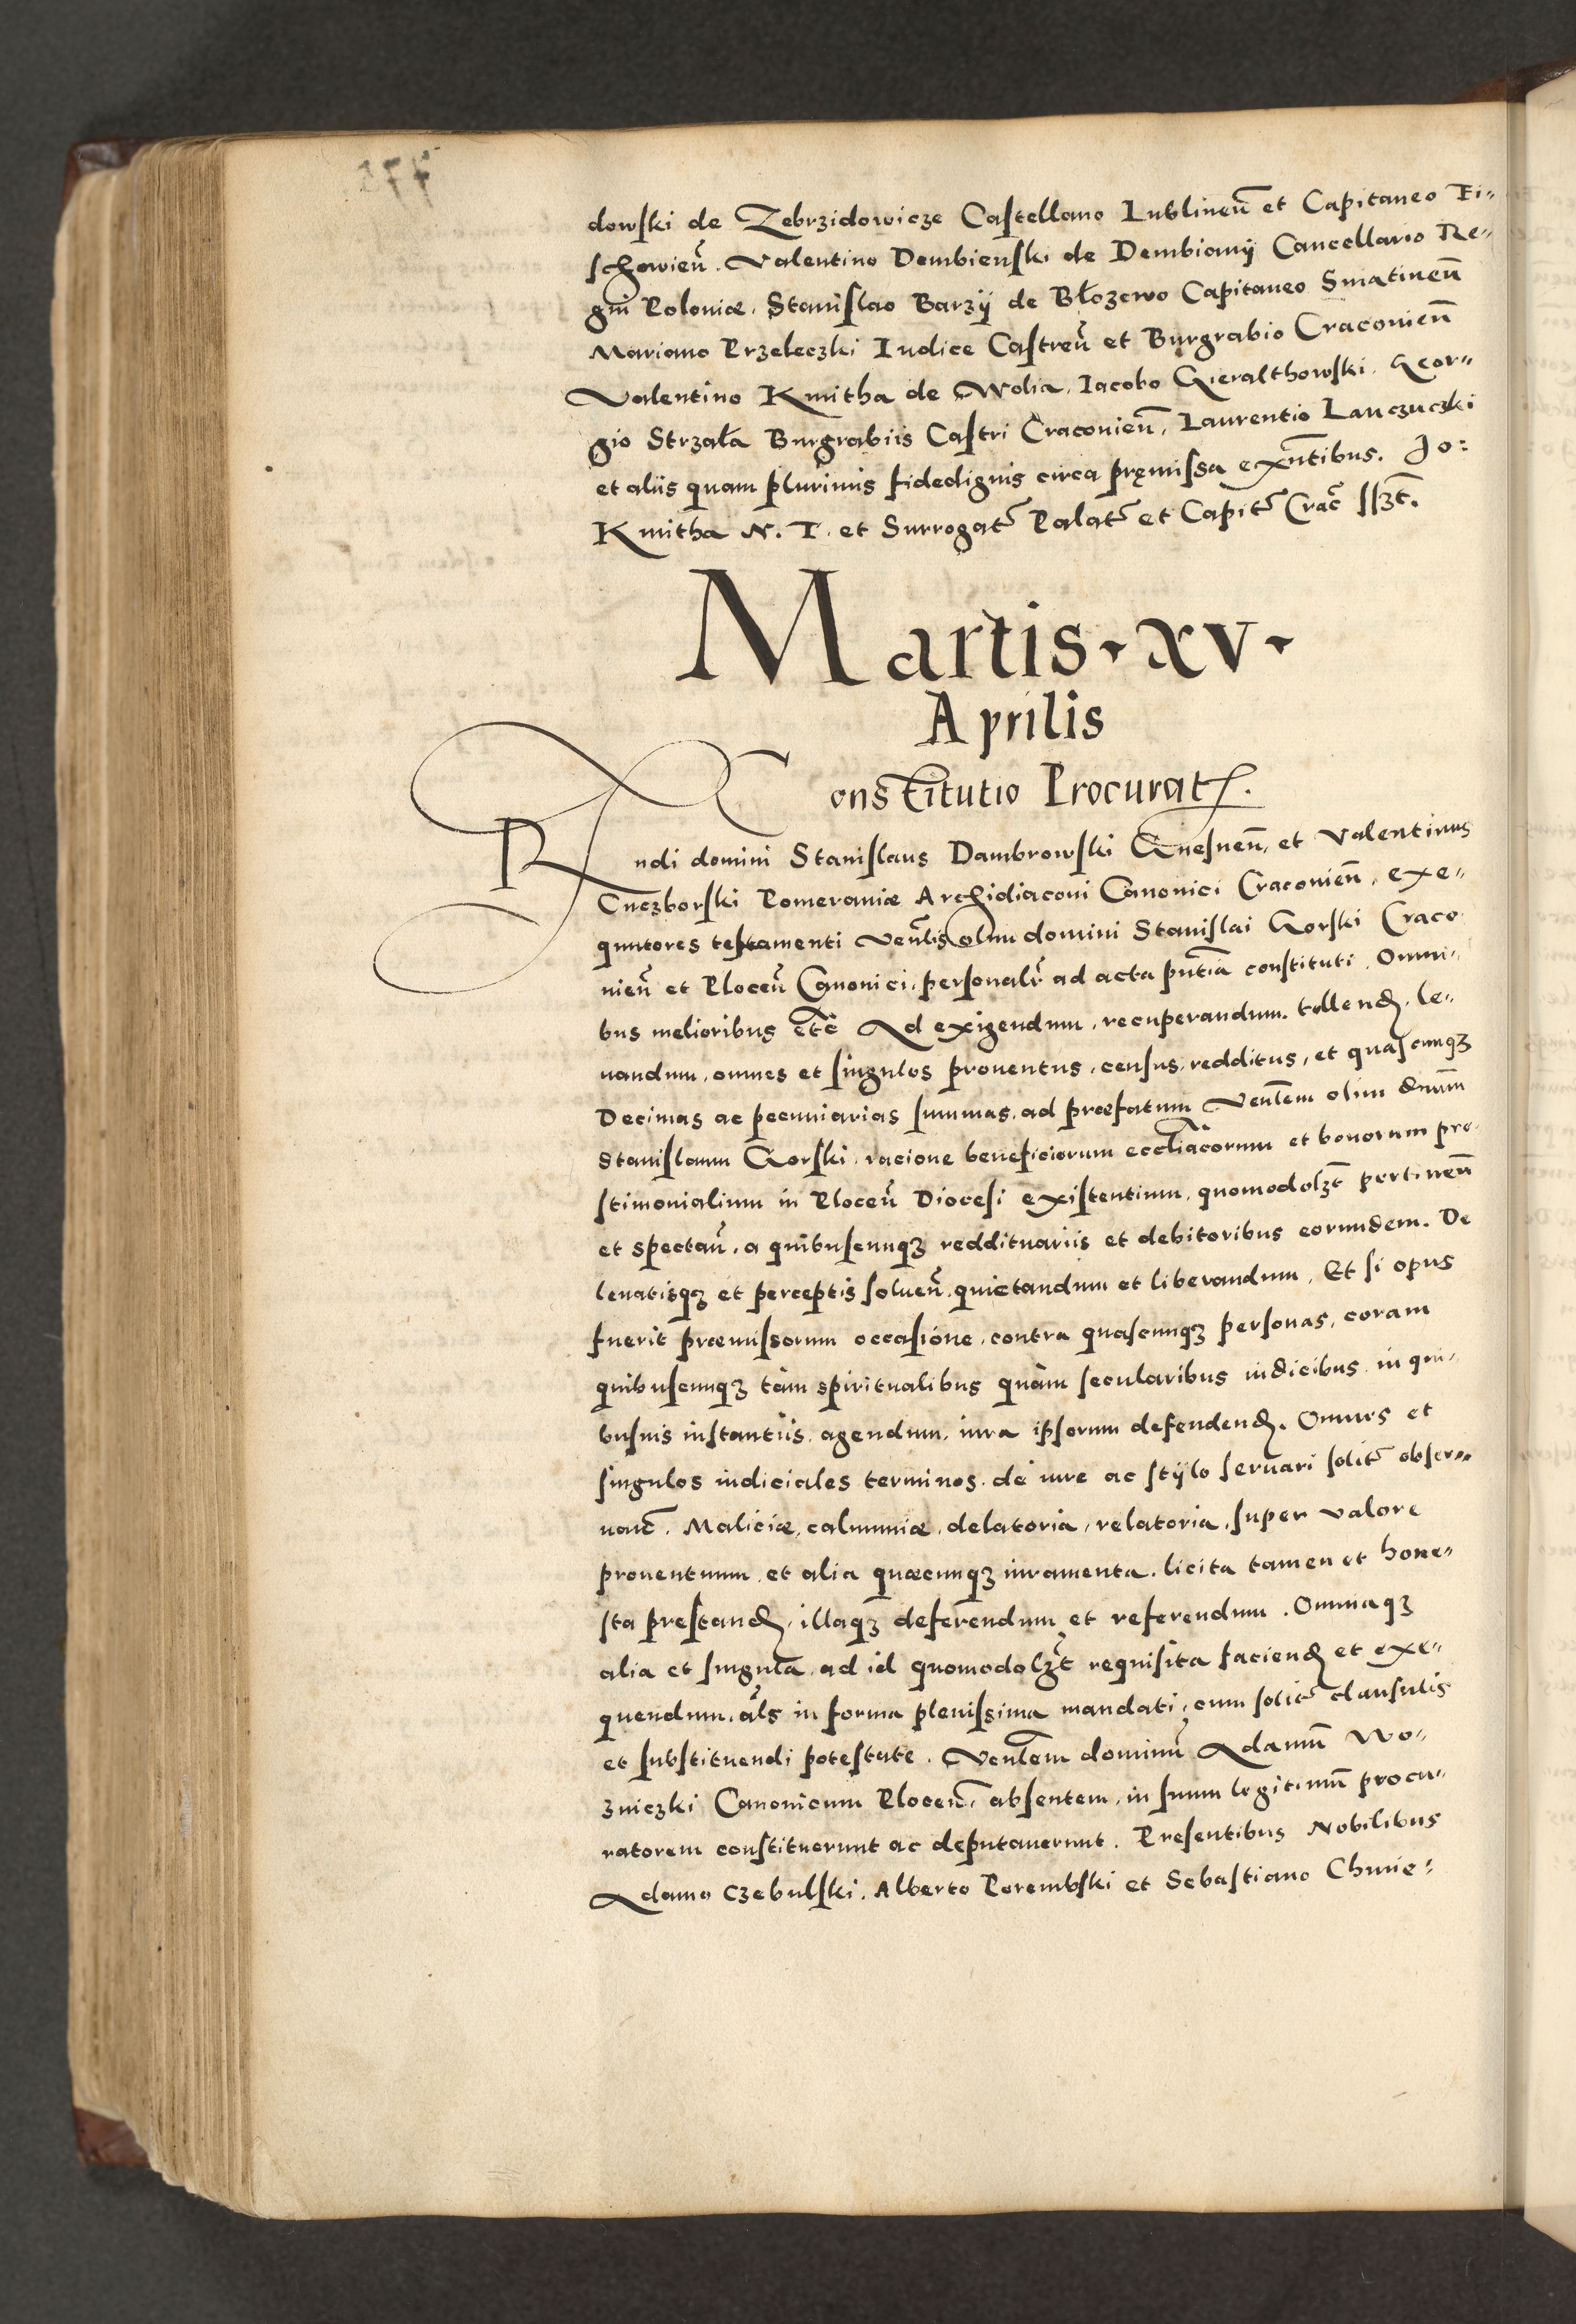 dowski de Zebrzidowicze Castellano Lublineñ et Capitaneo Ti„
schowieñ. Valentino Dembienski de Dembiany Cancellario Re„
gni Poloniæ. Stanislao Barzÿ de Błozewo Capitaneo Sniatineñ
Mariano Przeleczki Iudice Castreñ et Burgrabio Cracovieñ
Valentino Kmitha de Wolia. Iacobo Gieralthowski. Geor„
gio Strzała Burgrabiis Castri Cracovieñ. Laurentio Lanczuczki
et aliis quam plurimis fidedignis circa pręmissa exñtibus. Jo:
Kmitha N. T. et Surrogat̃ Palat̃ et Capit̃ Crac̃ sszt̃.
Martis · xv ·
Aprilis
Constitutio Procurat.
Rndi domini Stanislaus Dambrowski Gnesneñ. et Valentinus
Cuczborski Pomeraniæ Archidiaconi Canonici Cracovieñ. exe„
quutores testamenti Veñlis olim domini Stanislai Gorski Craco
vieñ et Ploceñ Canonici. personalr̃ ad acta pñtia constituti. Omni„
bus melioribus etc̃ Ad exigendum, recuperandum. tollend. le„
uandum, omnes et singulos prouentus, census, redditus, et quascunqꝫ
Decimas ac pecuniarias summas, ad præfatum Venlem olim dnum
Stanislaum Gorski. racione beneficiorum eccliacorum et bonorum pre
stimonialium in Ploceñ Diocesi existentium, quomodolꝫt pertineñ
et spectañ. a quibuscunqꝫ reddituariis et debitoribus eorundem. De
leuatisqꝫ et perceptis solueñ. quietandum et liberandum, Et si opus
fuerit præmissorum occasione, contra quascunqꝫ personas, coram
quibuscunqꝫ tàm spiritualibus quàm secularibus iudicibus in qui„
busuis instantiis agendum, iura ipsorum defendend. Omnes et
singulos iudiciales terminos de iure ac stylo seruari solit̃ obser„
uanc̃. Maliciæ, calumniæ, delatoria, relatoria, super valore
prouentuum et alia quæcunqꝫ iuramenta. licita tamen et hone„
sta prestand, illaqꝫ deferendum et referendum. Omniaqꝫ
alia et singula, ad id quomodolꝫt requisita faciend et exe„
quendum, als in forma plenissima mandati, cum solit̃ clausulis
et substituendi potestate. Venlem dominũ Adamũ Wo„
zniczki Canonicum Ploceñ. absentem, in suum legitimũ procu„
ratorem constituerunt ac deputauerunt. Presentibus Nobilibus
Adamo Czebulski. Alberto Porembski et Sebastiano Chmie„